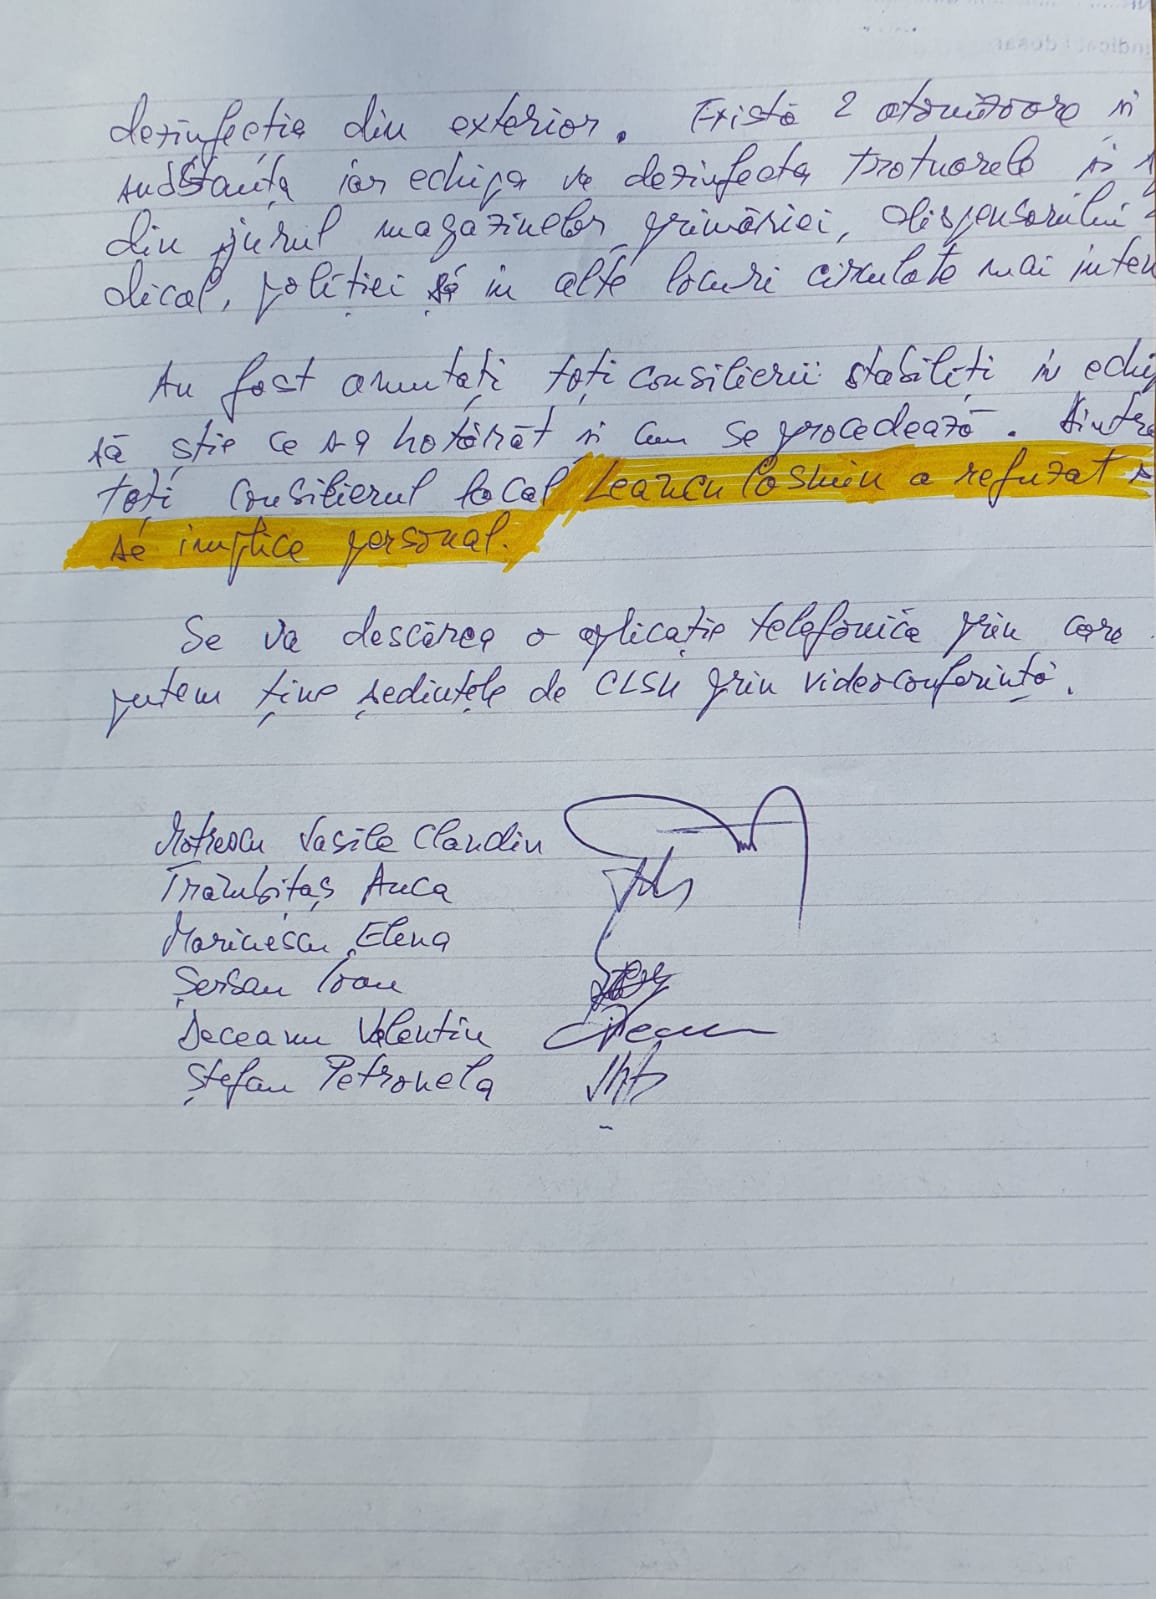 dezinfecția din exterior. Există 2 atomizoare și
substanța iar echipa va dezinfecta trotuarele și
din jurul magazinelor, primăriei, dispensarului
dical, poliției și în alte locuri circulate mai inten
Au fost anunțați toți consilierii stabiliți în echi
să știe ce s-a hotărât și cum se procedează. Dintre
toți consilierul local Leancu Cosmin a refuzat
se implice personal.
Se va descărca o aplicație telefonică prin care
putem ține ședințele de CLSU prin videoconferință.
Motrescu Vasile Claudiu
Trâmbițaș Anca
Marinescu Elena
Șerban Ioan
Deceanu Valentin
Ștefan Petronela